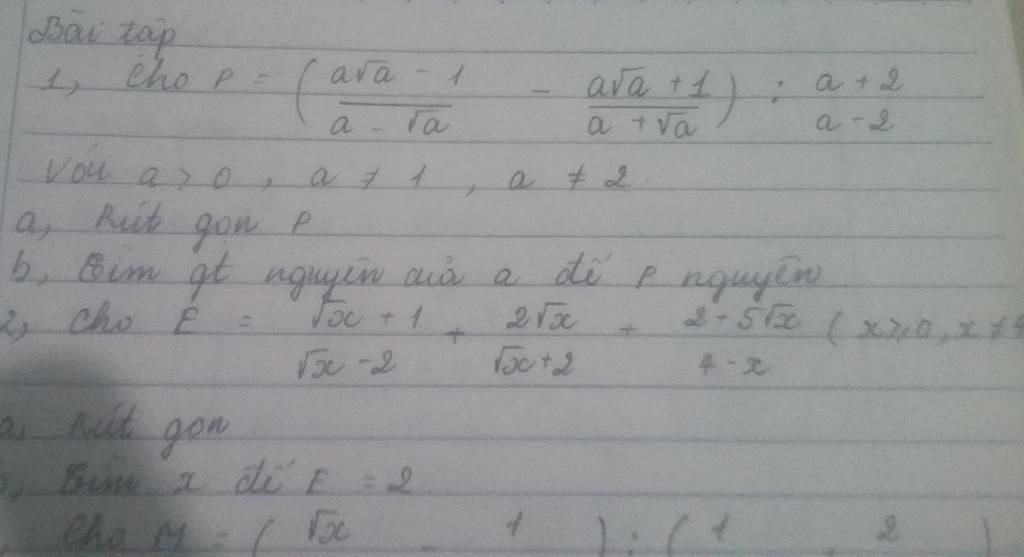 Bài tập
1, Cho P = ( a√a - 1 / a - √a - a√a + 1 / a + √a ) : a + 2 / a - 2
Với a > 0, a ≠ 1, a ≠ 2
a, Rút gọn P
b, Tìm gt nguyên của a để P nguyên
2, Cho E = √x + 1 / √x - 2 + 2√x / √x + 2 + 2 + 5√x / 4 - x ( x ≥ 0, x ≠ 4
a, Rút gọn
, Tìm x để E = 2
, Cho M = ( √x - 1 ) : ( 1 2 )